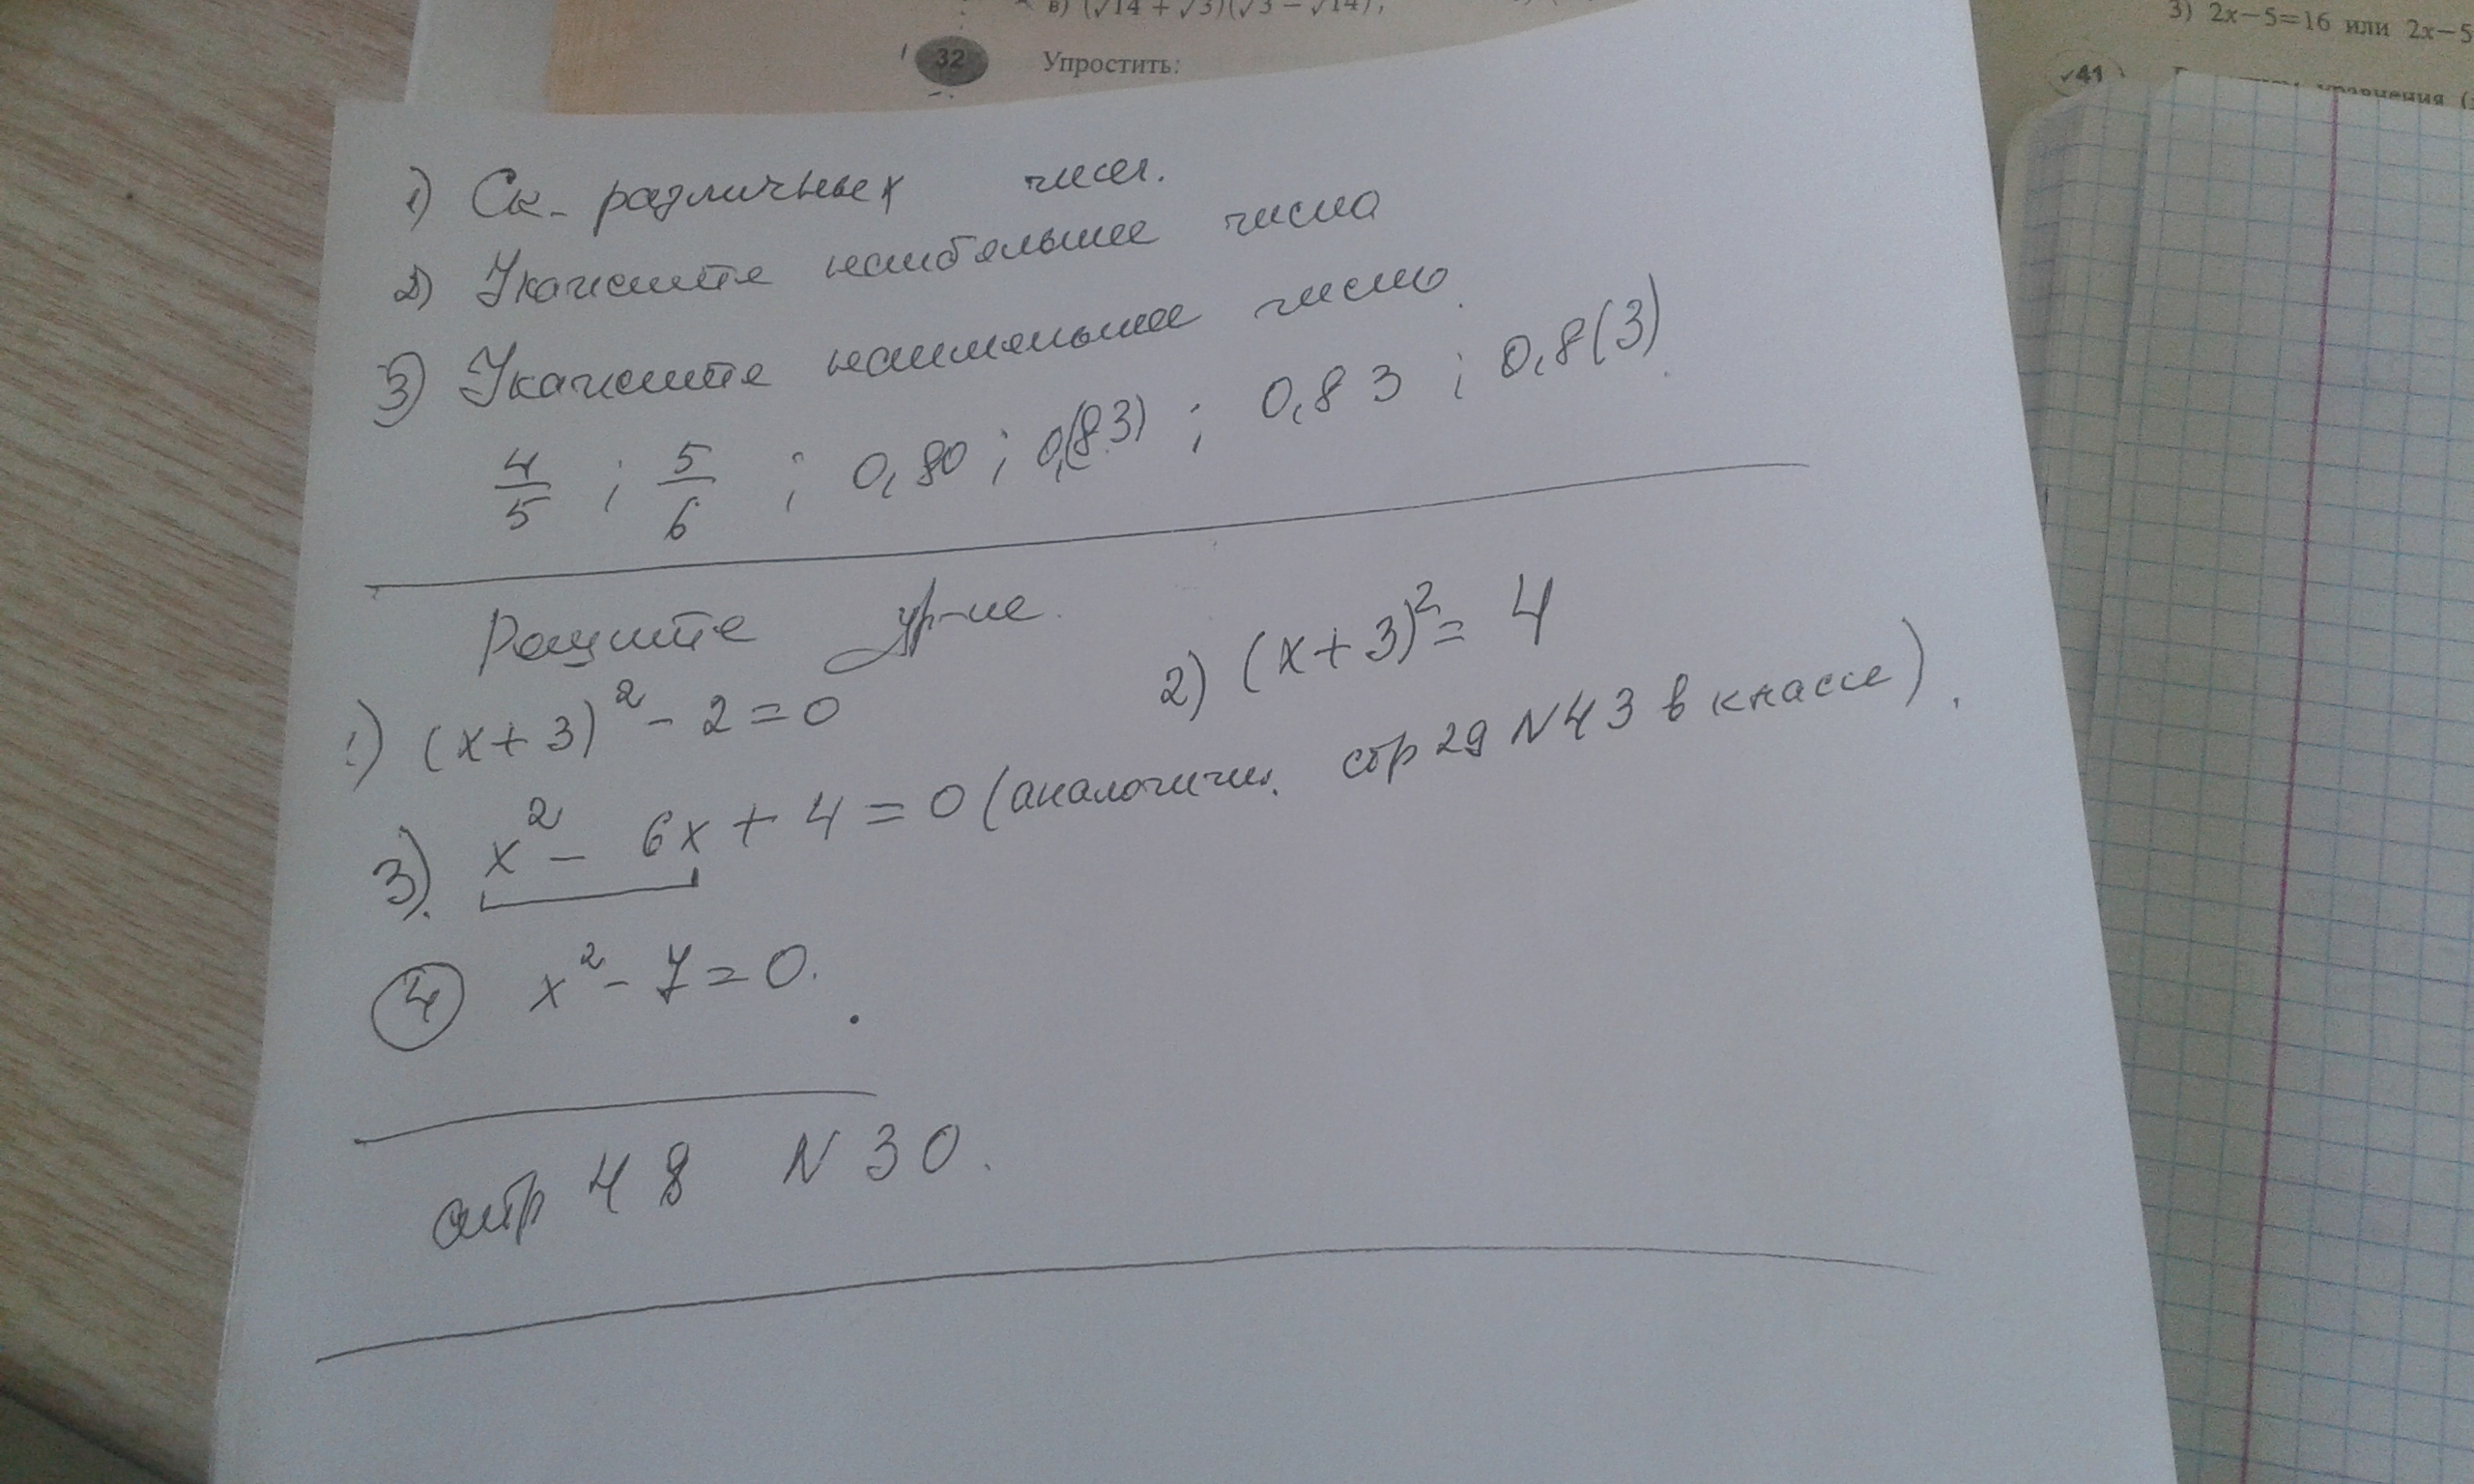 в) (√14 + √3)(√3 − √14);
32 Упростить:
3) 2x−5=16 или 2x−5
41 уравнения (
1) Ск. различных чисел.
2) Укажите наибольшее числа
3) Укажите наименьшее число.
4/5 ; 5/6 ; 0,80 ; 0,(83) ; 0,83 ; 0,8(3).
Решите ур-ие.
1) (x+3)² − 2 = 0
2) (x+3)² = 4
3). x² − 6x + 4 = 0 (аналогичн. стр 29 N43 в классе).
4 x² − 7 = 0.
стр 48 N 30.